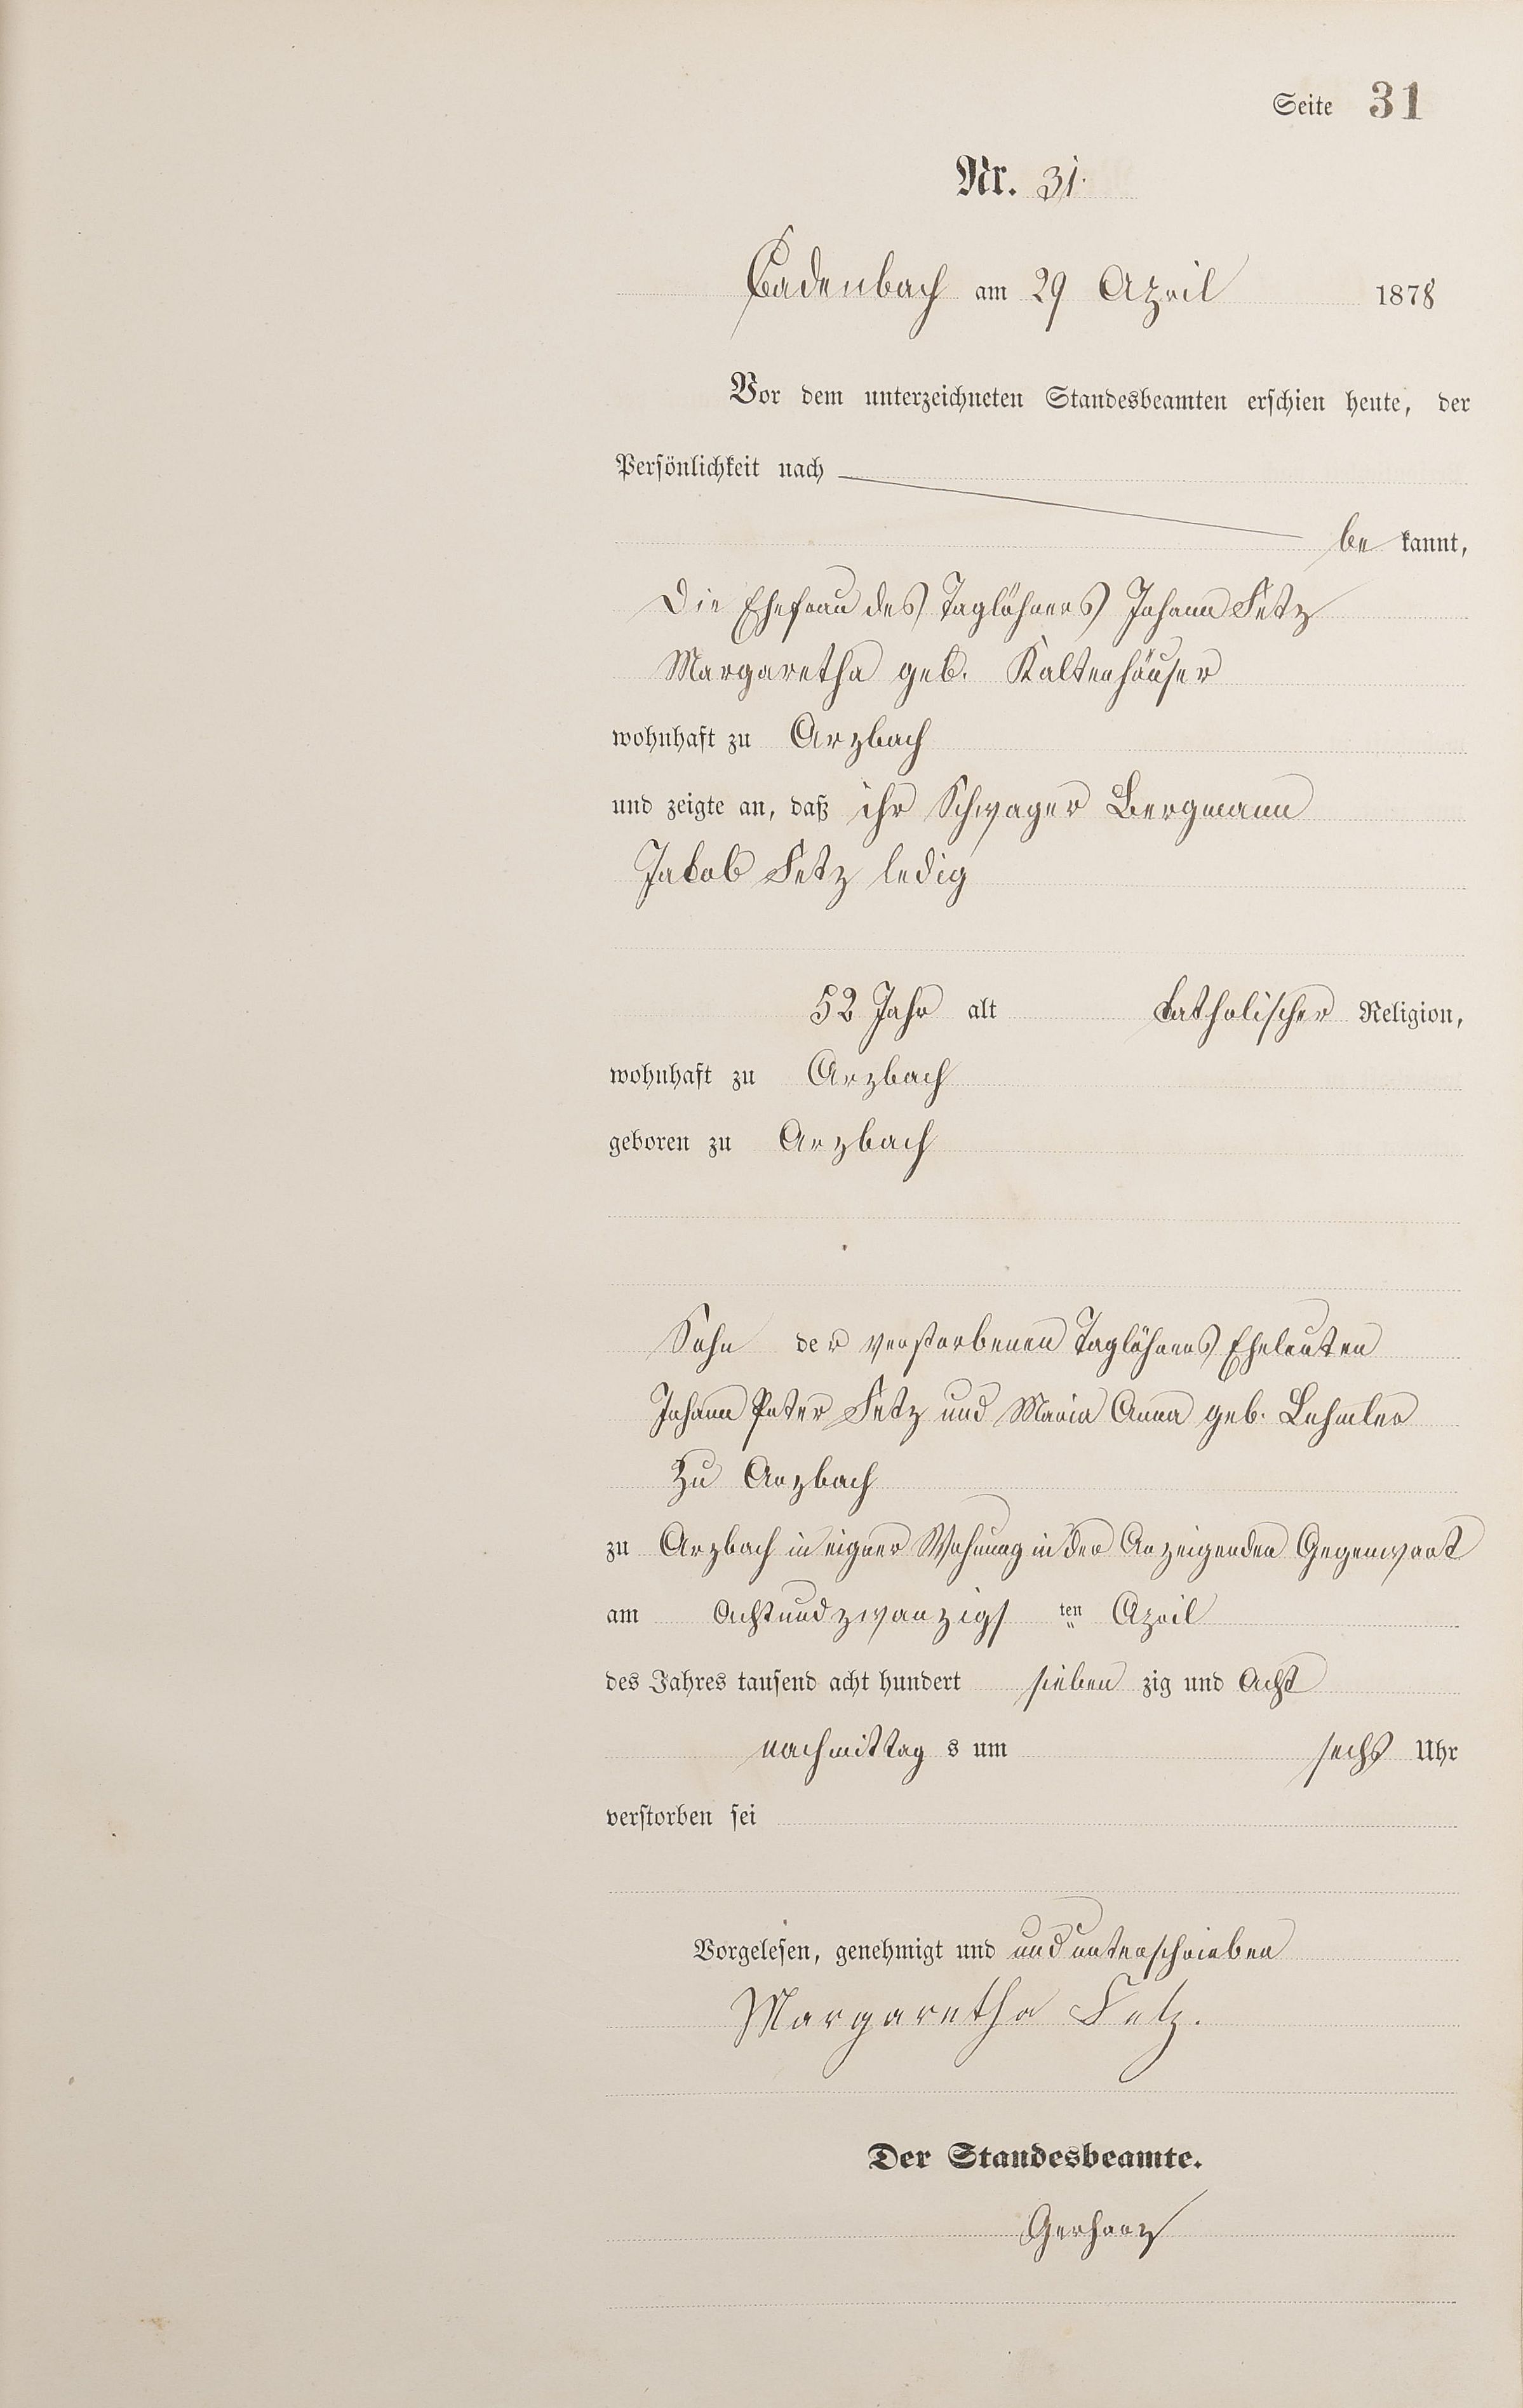 Seite 31
Nr. 31.
Cadenbach am 29 April 1878
Vor dem unterzeichneten Standesbeamten erschien heute, der
Persönlichkeit nach
be kannt,
Die Ehefrau des Taglöhners Johann Fetz
Margaretha geb. Kaltenhäuser
wohnhaft zu Arzbach
und zeigte an, daß ihr Schwager Bergmann
Jakob Fetz ledig
52 Jahr alt katholischer Religion,
wohnhaft zu Arzbach
geboren zu Arzbach
Sohn der verstorbenen Taglöhners Eheleuten
Johann Peter Fetz und Maria Anna geb. Lehmler
zu Arzbach
zu Arzbach in eigner Wohnung in der Anzeigenden Gegenwart
am Achtundzwanzigs ten April
des Jahres tausend acht hundert sieben zig und Acht
nachmittag s um sechs Uhr
verstorben sei
Vorgelesen, genehmigt und und unterschrieben
Margaretha Fetz.
Der Standesbeamte.
Gerharz